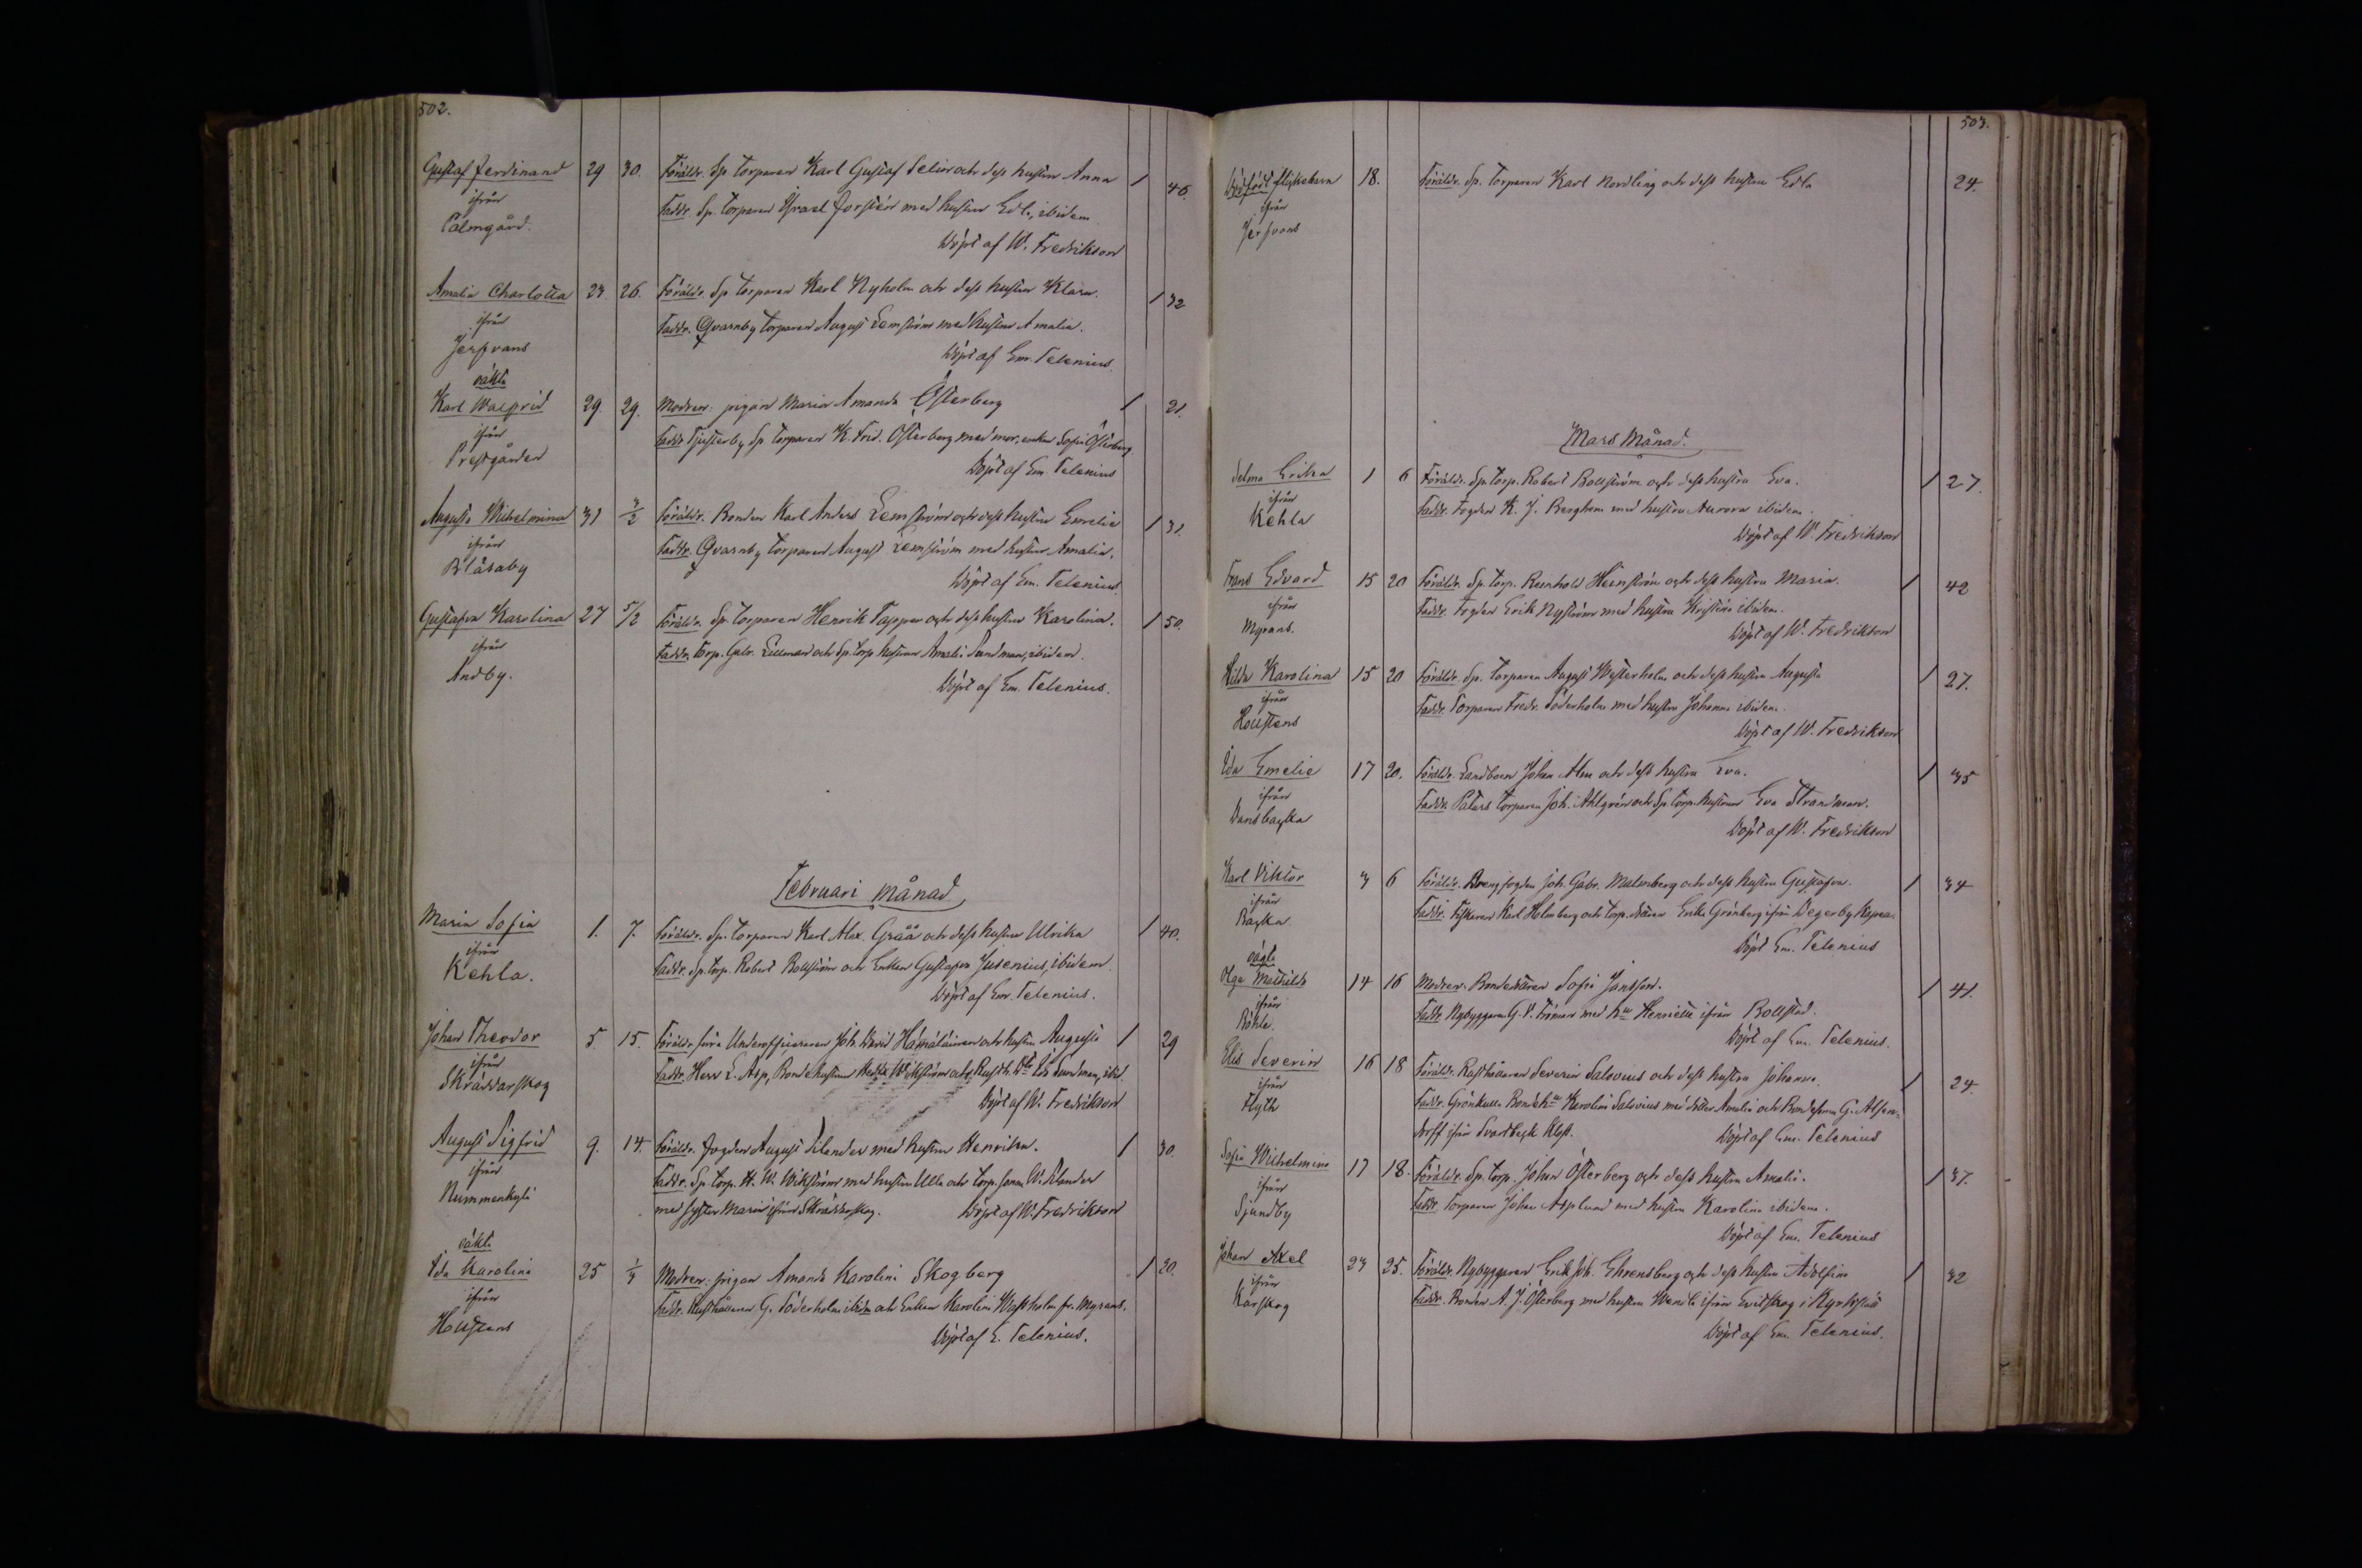 502.
Gustaf Ferdinand 29 30. Föräldr. Sp. torparen Karl Gustaf Selin och dess hustru Anna / 46.
ifrån Faddr. Sp. torparen Israel Forstén med hustru Edla, ibidem
Palmgård. Döpt af W. Fredrikson
Amalia Charlotta 23. 26. Föräldr. Sp. torparen Karl Nyholm och dess hustru Klara. / 32
ifrån Faddr. Qvarnby torparen August Lemström med hustru Amalia.
Jerfvans Döpt af Em. Telenius.
oäkta
Karl Walfrid 29. 29. Modren: pigan Maria Amanda Österberg / 21.
ifrån Faddr. Tjusterby Sp. torparen K. Frid. Österberg med mor, enkan Sofia Österberg
Prestgården Döpt af Em. Telenius
Augusta Wilhelmina 31 3/2 Föräldr. Bonden Karl Anders Lemström och dess hustru Emelie / 31.
ifrån Faddr. Qvarnby torparen August Lemström med hustru Amalia.
Blåsaby Döpt af Em. Telenius.
Gustafva Karolina 27 5/2 Föräldr. Sp. torparen Henrik Tapper och dess hustru Karolina. / 50.
ifrån Faddr. Torp. Gabr. Lillman och Sp. torp. hustrun Amalia Sundman, ibidem.
Andby. Döpt af Em. Telenius.
Februari månad
Maria Sofia 1. 7. Föräldr. Sp. torparen Karl Alex. Gråå och dess hustru Ulrika / 40.
ifrån Faddr. Sp. torp. Robert Bollström och Enkan Gustafva Jusenius, ibidem
Kehla. Döpt af Em. Telenius.
Johan Theodor 5. 15. Föräldr. förra Underofficeraren Joh. David Hämäläinen och hustru Augusta / 29
ifrån Faddr. Herr L. Asp, Bondehustrun Hedda Wikström och Rusth. Ida Sundman, ibid.
Skräddarskog Döpt af W. Fredrikson
August Sigfrid 9. 14. Föräldr. Fogden August Silander med hustru Henrika. / 30.
ifrån Faddr. Sp. torp. H. W. Wikström med hustru Ulla och torp. sonen W. Silander
Nummenkylä med syster Maria ifrån Skräddarskog. Döpt af W. Fredrikson
oäkta
Ida Karolina 25 1/3 Modren: pigan Amanda Karolina Skogberg / 20.
ifrån Faddr. Rusthållaren G. Söderholm ibidem och Enkan Karolina Westholm fr. Myrans.
Hollstens Döpt af E. Telenius.
503.
Dödfödt flickebarn 18. Föräldr. Sp. torparen Karl Nordling och dess hustru Edla 24.
ifrån
Jerfvans
Mars Månad.
Selma Erika 1 6 Föräldr. Sp. torp. Robert Bollström och dess hustru Eva. / 27.
ifrån Faddr. Fogden K. J. Berghem med hustru Aurora ibidem.
Kehla Döpt af W. Fredrikson
Frans Edvard 15 20 Föräldr. Sp. torp. Reinhold Heinström och dess hustru Maria. / 42
ifrån Faddr. Fogden Erik Nyström med hustru Kristina ibidem.
Myrans. Döpt af W. Fredrikson
Hilda Karolina 15 20 Föräldr. Sp. torparen August Westerholm och dess hustru Augusta / 27.
ifrån Faddr. Torparen Fredr. Söderholm med hustru Johanna ibidem.
Hollstens Döpt af W. Fredrikson
Ida Emelie 17 20. Föräldr. Landboen Johan Alm och dess hustru Eva. / 35
ifrån Faddr. Patars torparen Joh. Ahlgrén och Sp. torp. hustrun Eva Strandman.
Dansbacka Döpt af W. Fredrikson
Karl Viktor 3 6 Föräldr. Drengfogden Joh. Gabr. Malmberg och dess hustru Gustafva. / 34
ifrån Faddr. Fiskaren Karl Holmberg och torp. Enka Grönberg ifrån Degerby
Backa Döpt Em. Telenius
oägta
Olga Mathilda 14 16 Modren: Bondedottren Sofia Jansson. / 41.
ifrån Faddr. Nybyggaren G. V. Fröman med hu Henrietta ifrån Bollstad.
Böhle. Döpt af Em. Telenius.
Elis Severin 16 18 Föräldr. Rusthållaren Severin Salovius och dess hustru Johanna. / 24
ifrån Faddr. Grönkulla Bondeh. Karolina Salovius med dotter Amalia och Bondesonen G. Alfen-
Flyth dorff ifrån Svartbeck Döpt af Em. Telenius
Sofia Wilhelmina 17 18. Föräldr. Sp. torp. Johan Österberg och dess hustru Amalia. / 37.
ifrån Faddr. Torparen Johan Asplund med hustru Karolina ibidem.
Sjundby Döpt af Em. Telenius
Johan Axel 23 25. Föräldr. Nybyggaren Erik Joh. Ehrensberg och dess hustru Adolfina / 32
ifrån Faddr. Bonden A. J. Österberg med hustru Wendla ifrån Evitskog i Kyrkslätt
Karskog Döpt af Em. Telenius.